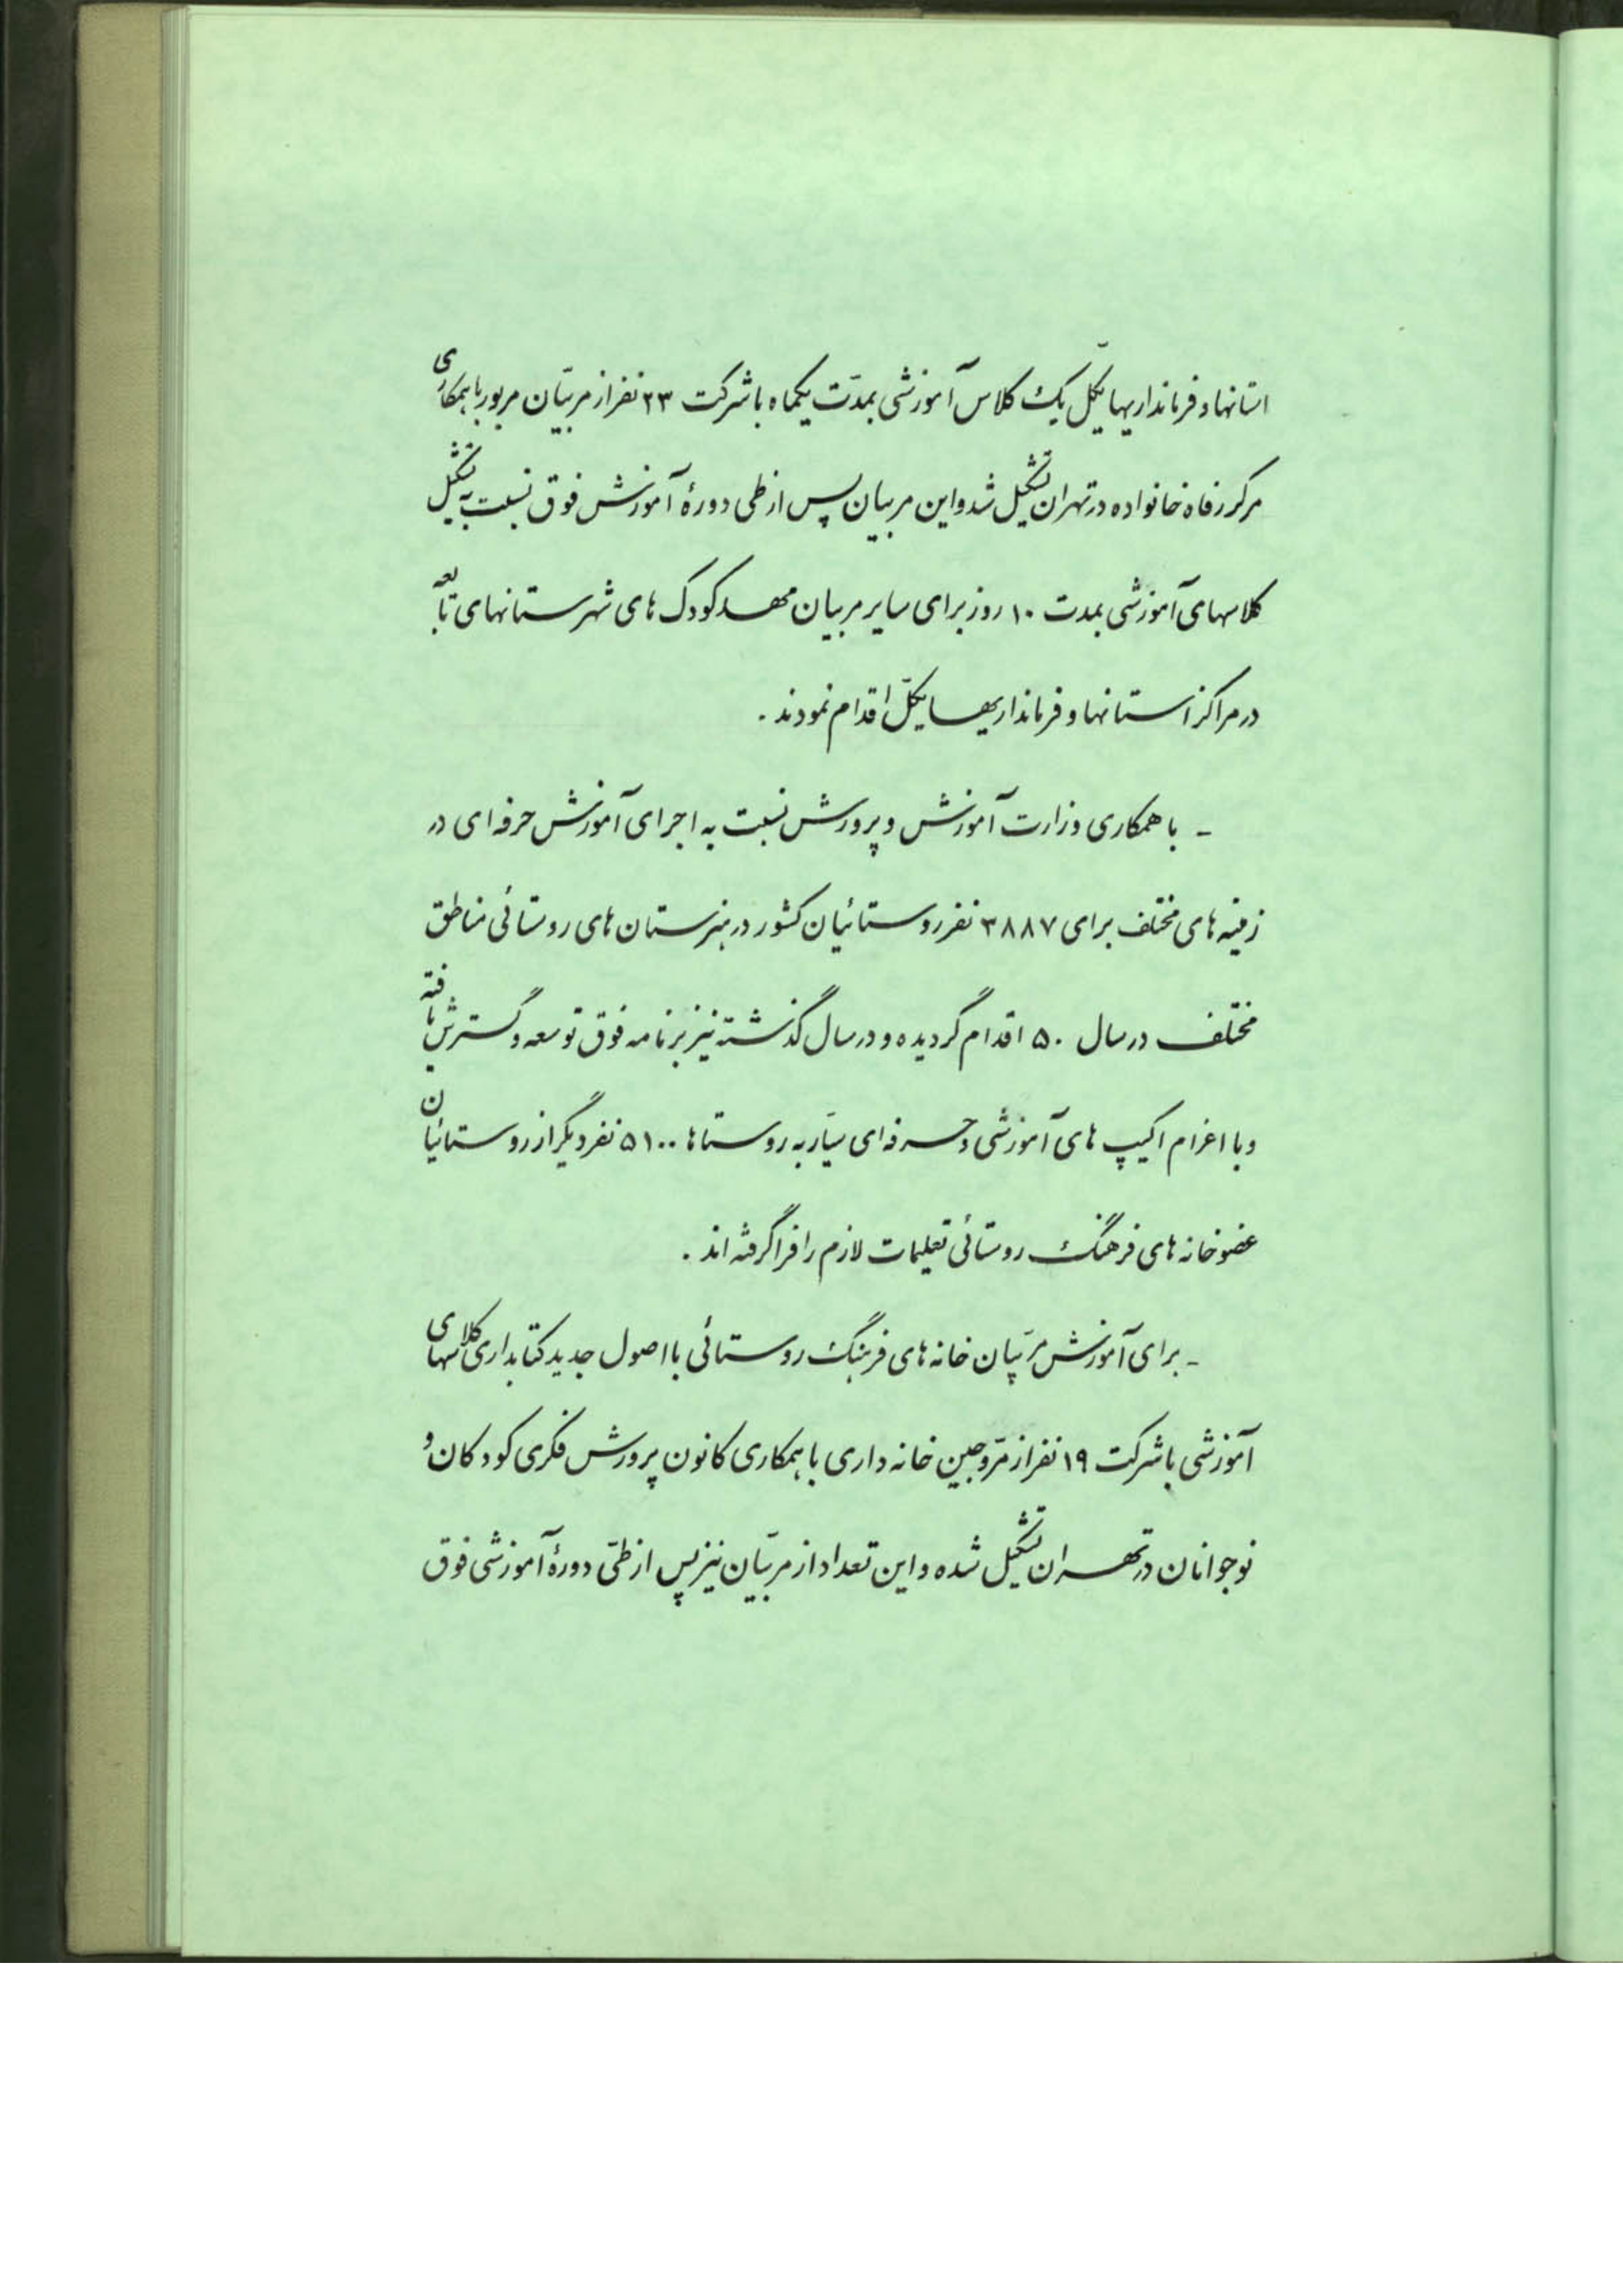 استانها و فرمانداریهایکل یک کلاس آموزشی بمدّت یکماه با شرکت ۲۳ نفر از مربیّان مزبور با همکاری
مرکز رفاه خانواده در تهران تشکیل شد و این مربیان پس از طی دورهٔ آموزش فوق نسبت به تشکیل
کلاسهای آموزشی بمدت ۱۰ روز برای سایر مربیان مهد کودک های شهرستانهای تابعه
در مراکز استانها و فرمانداریهایکلّ اقدام نمودند .
ـ با همکاری وزارت آموزش و پرورش نسبت به اجرای آموزش حرفه ای در
زمینه های مختلف برای ۳۸۸۷ نفر روستائیان کشور در هنرستان های روستائی مناطق
مختلف در سال ۵۰ اقدام گردیده و در سال گذشته نیز برنامه فوق توسعه و گسترش یافته
و با اعزام اکیپ های آموزشی و حرفه ای سیّار به روستاها ۵۱۰۰ نفر دیگر از روستائیان
عضو خانه های فرهنگ روستائی تعلیمات لازم را فرا گرفته اند .
ـ برای آموزش مربّیان خانه های فرهنگ روستائی با اصول جدید کتابداری کلاسهای
آموزشی با شرکت ۱۹ نفر از مرّوجین خانه داری با همکاری کانون پرورش فکری کودکان و
نوجوانان در تهران تشکیل شده و این تعداد از مربیّان نیز پس از طیّ دورهٔ آموزشی فوق